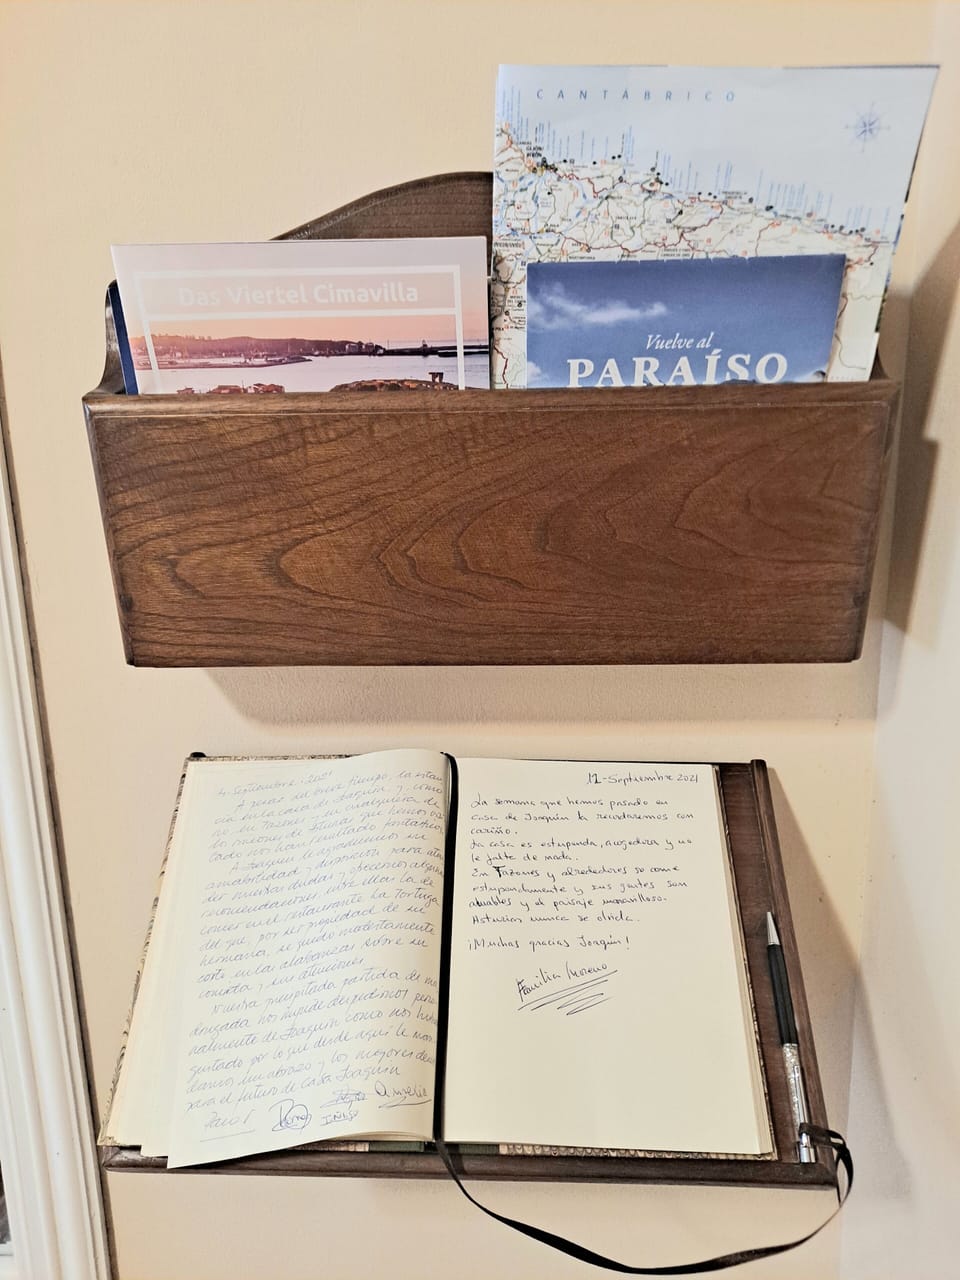 CANTÁBRICO
Das Viertel Cimavilla
Vuelve al
PARAÍSO
4-Septiembre-2021
A pesar del breve tiempo, la estan
cia en la casa de Joaquín, y, como
no, en Tazones y en cualquiera de
los rincones de Asturias que hemos
tado nos han resultado fantásticos.
A Joaquín le agradecemos su
amabilidad y disposición para aten
der nuestras dudas y ofrecernos algunas
recomendaciones, entre ellas la de
comer en el restaurante La Tortuga
del que, por ser propiedad de su
hermana, se quedó modestamente
corto en las alabanzas sobre su
comida y sus atenciones.
Nuestra precipitada partida de ma
drugada nos impide despedirnos perso
nalmente de Joaquín como nos hubiera
gustado por lo que desde aquí le man
damos un abrazo y los mejores deseos
para el futuro de Casa Joaquín
11-Septiembre 2021
La semana que hemos pasado en
casa de Joaquín la recordaremos con
cariño.
La casa es estupenda, acogedora y no
le falta de nada.
En Tazones y alrededores se come
estupendamente y sus gentes son
amables y el paisaje maravilloso.
Asturias nunca se olvida.
¡Muchas gracias Joaquín!
Familia Moreno